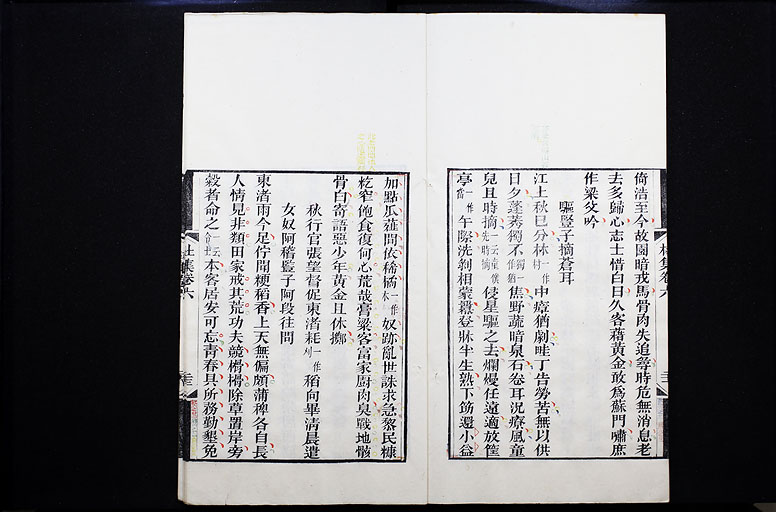 倚浩至今故園暗戎馬骨肉失追尋時危無消息老
去多歸心志士惜白日久客藉黃金敢爲蘇門嘯庶
作梁父吟
驅豎子摘蒼耳
江上秋已分林一作村中瘴猶劇畦丁告勞苦無以供
日夕蓬莠獨一作猶不焦野蔬暗泉石卷耳況療風童
兒且時摘一云童僕先時摘侵星驅之去爛熳任遠適放筐
亭一作當午際洗剝相蒙羃登牀半生熟下筯還小益
加點瓜薤間依稀橘一作木奴跡亂世誅求急黎民糠
籺窄飽食復何心荒哉膏粱客富家厨肉臭戰地骸
骨白寄語惡少年黃金且休擲
秋行官張望督促東渚耗一作刈稻向畢清晨遣
女奴阿稽豎子阿段往問
東渚雨今足佇聞粳稻香上天無偏頗蒲稗各自長
人情見非類田家戒其荒功夫競搰搰除草置岸旁
穀者命之一云令士本客居安可忘青春具所務勤墾免
杜集卷六
杜集卷六